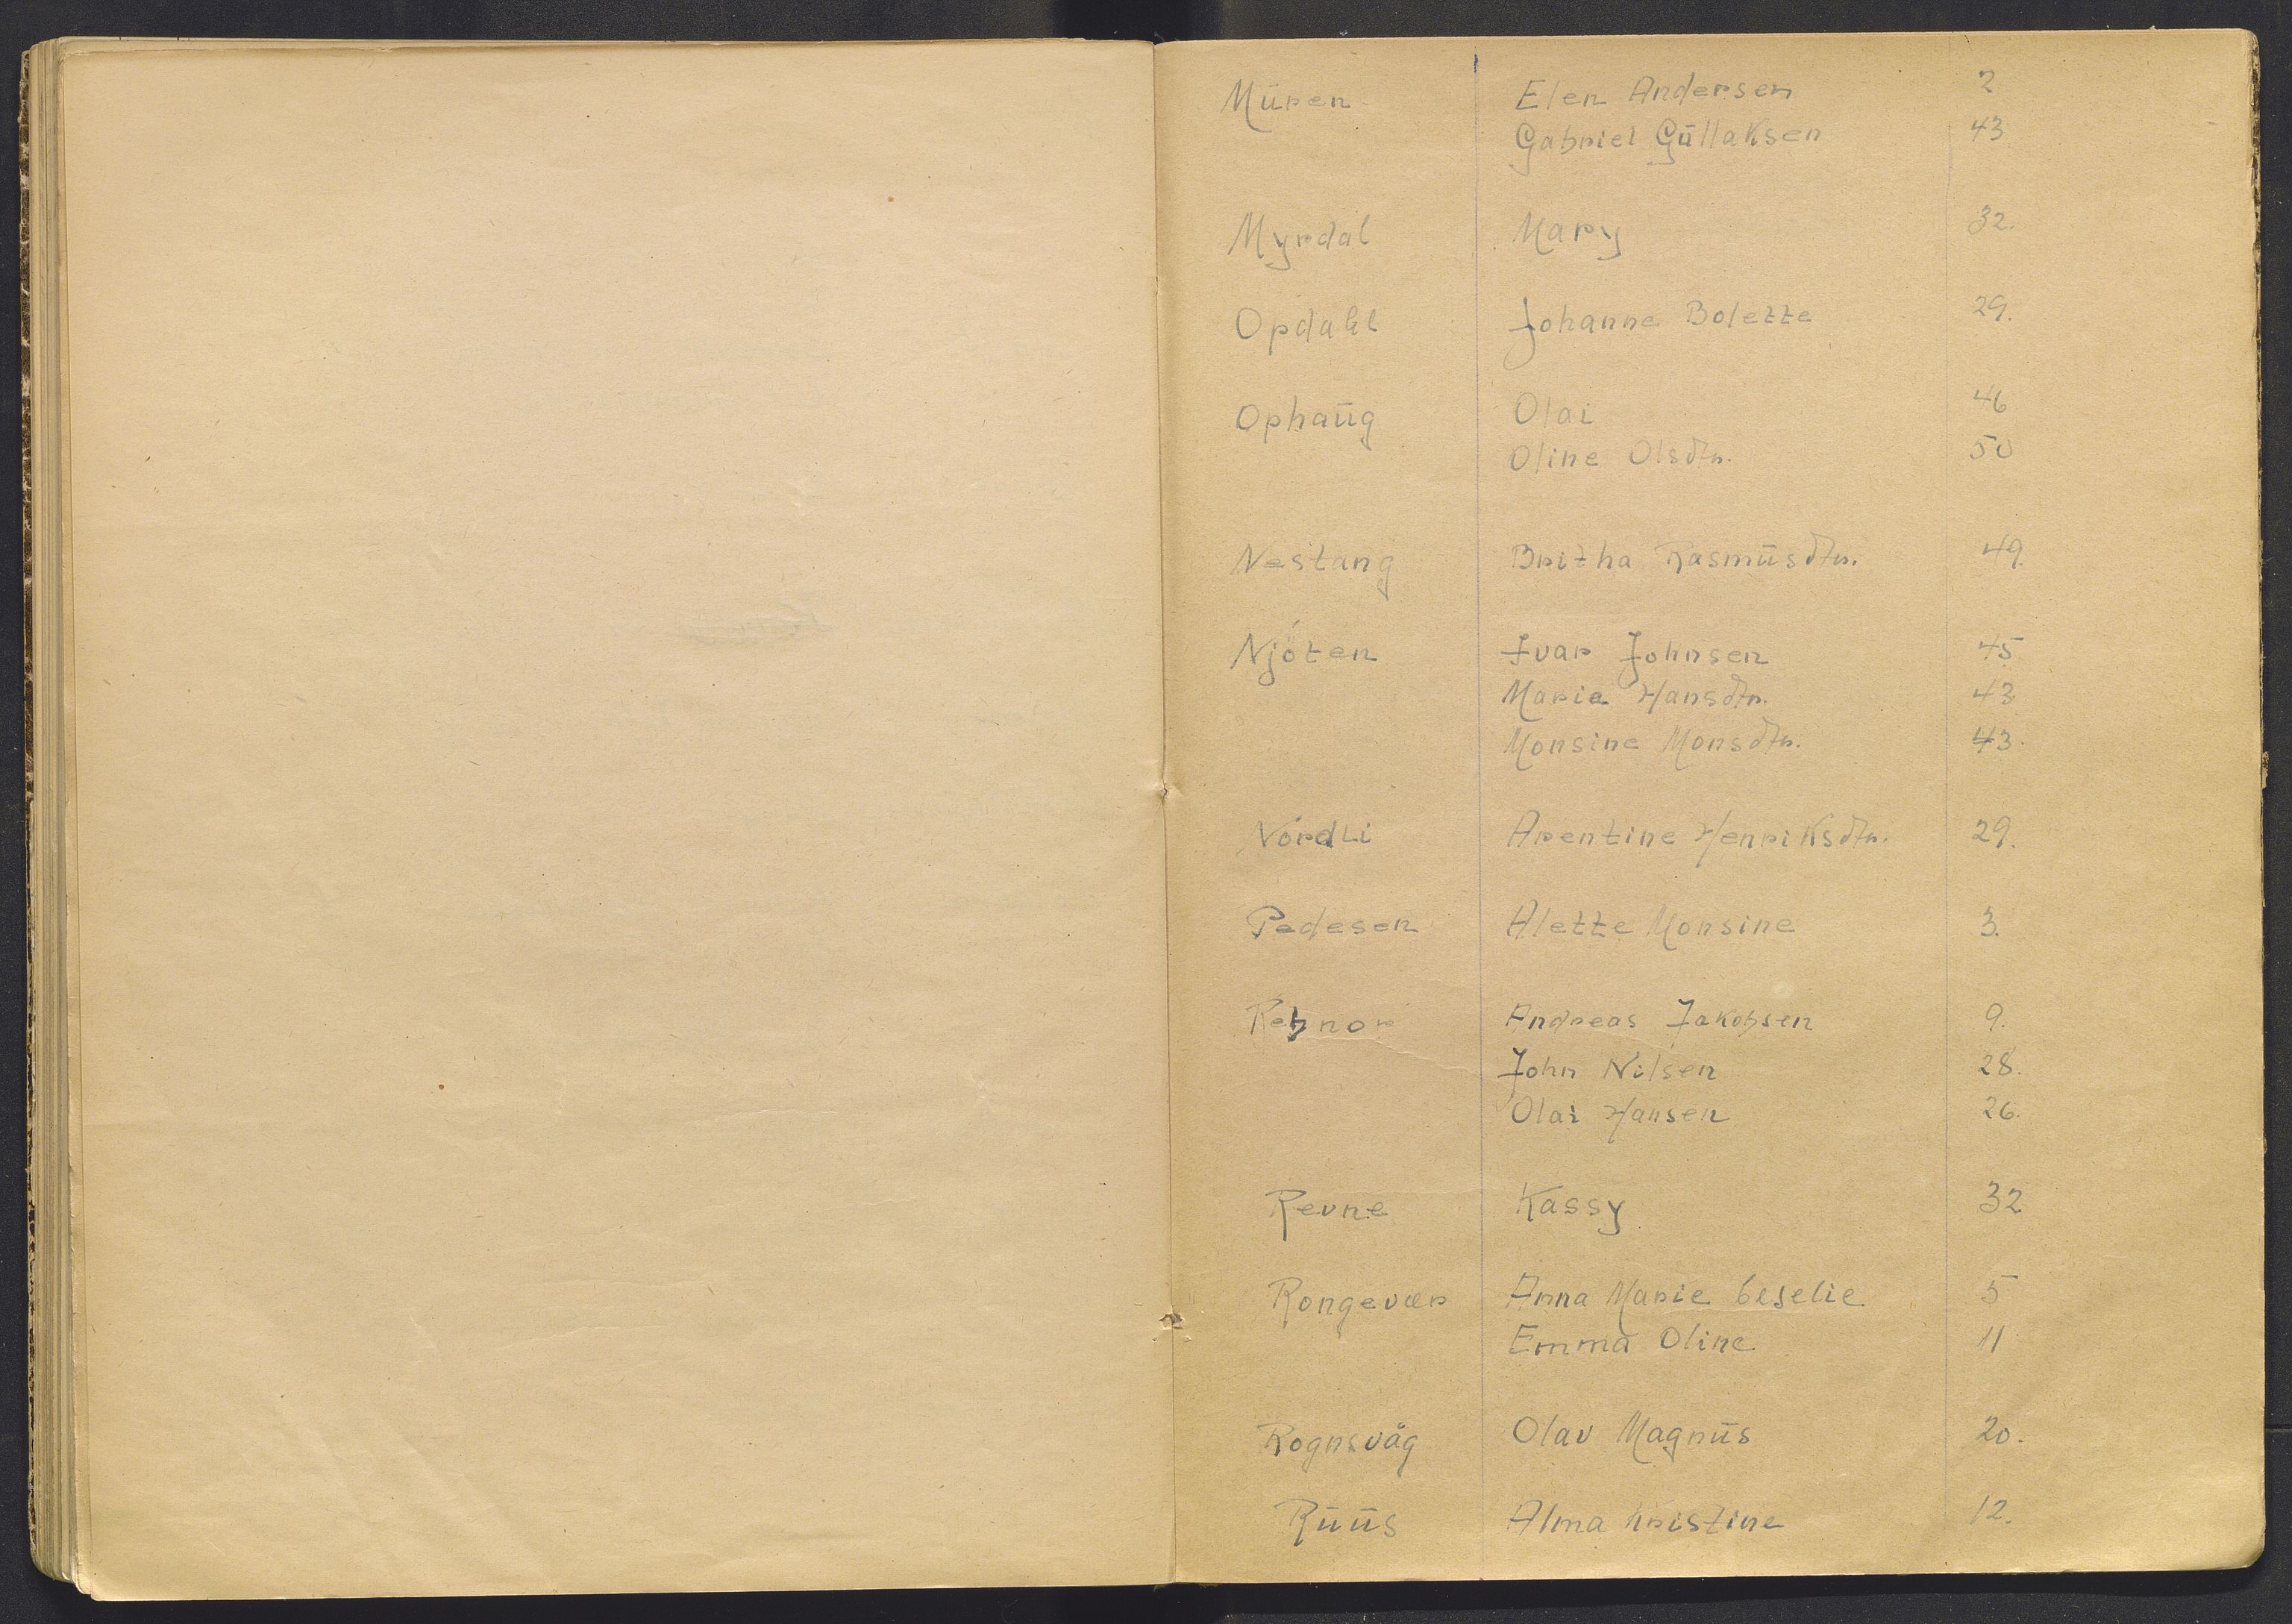 Mūren Elen Andersen 2
Gabriel Gūllaksen 43
Myrdal Mary 32.
Opdahl Johanne Bolette 29.
Ophaūg Olai 46
Oline Olsdtr. 50
Nestang Britha Rasmūsdtr. 49.
Njóten Ivar Johnsen 45
Maria Hansdtr. 43
Monsine Monsdtr. 43.
Nórdli Arentine Henriksdtr. 29.
Pedesen Alette Monsine 3.
Rebnor Andreas Jakobsen 9.
John Nilsen 28.
Olai Hansen 26.
Revne Kassy 32
Rongevær Anna Marie 5
Emma Oline 11
Rognsvåg Olav Magnūs 20.
Rūūs Alma kristine 12.